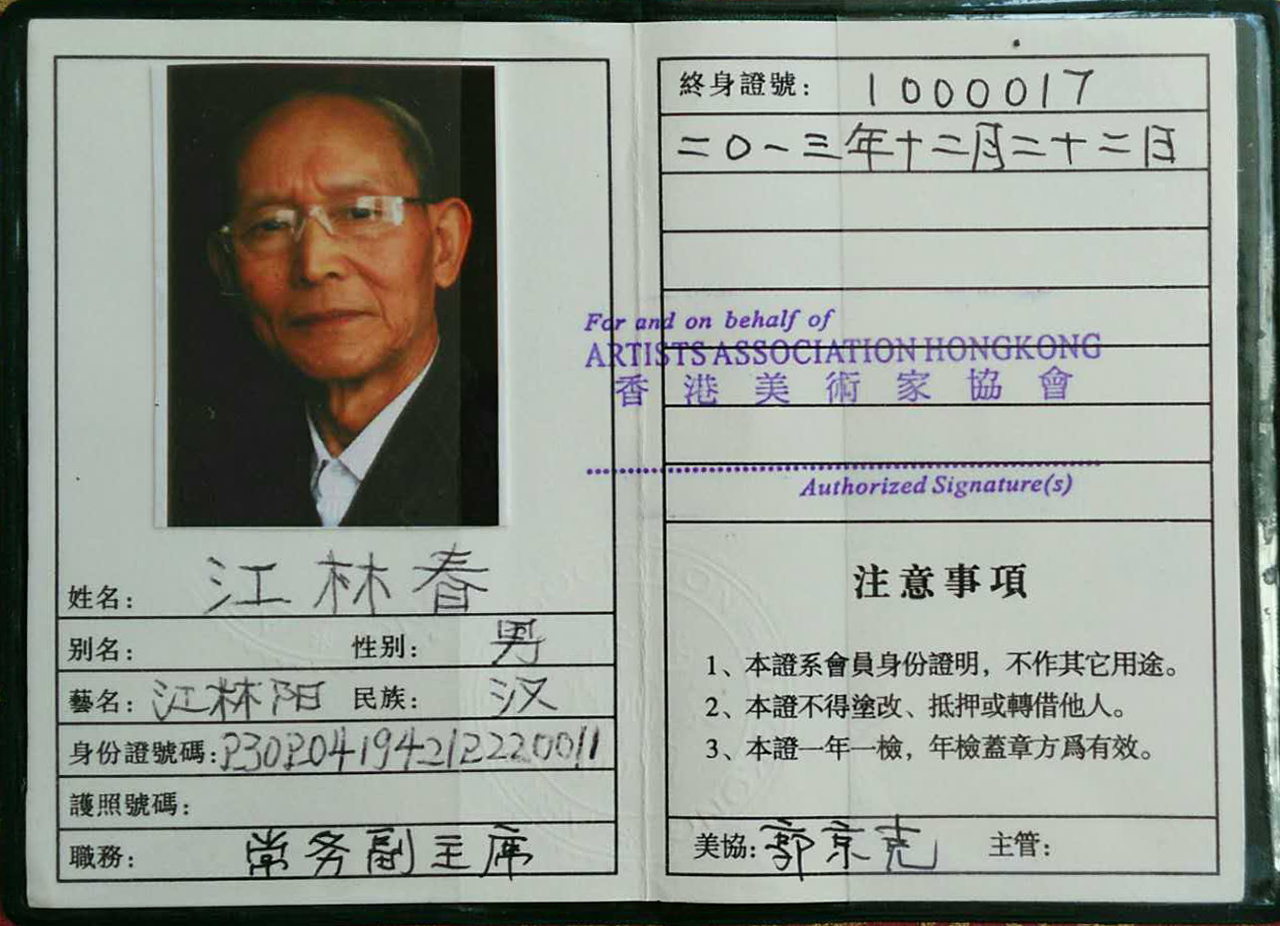 姓名: 江林春
别名: 性别: 男
藝名: 江林阳 民族: 汉
身份證號碼:
護照號碼:
職務: 常务副主席
終身證號: 1000017
二〇一三年十二月二十二日
For and on behalf of
ARTISTS ASSOCIATION HONGKONG
香港美術家協會
Authorized Signature(s)
注意事項
1、本證系會員身份證明，不作其它用途。
2、本證不得塗改、抵押或轉借他人。
3、本證一年一檢，年檢蓋章方爲有效。
美協: 郭京克 主管: